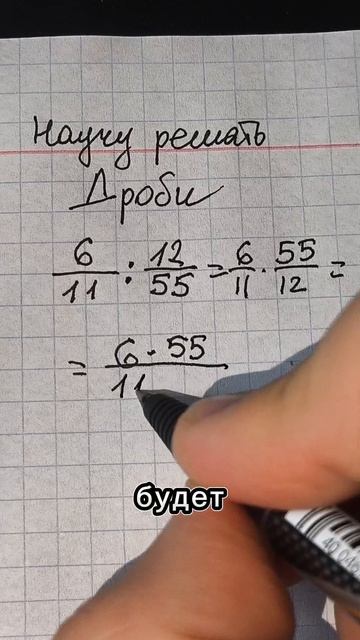 Научу решать
Дроби
6/11 : 12/55 = 6/11 · 55/12 =
= 6 · 55 / 11
будет